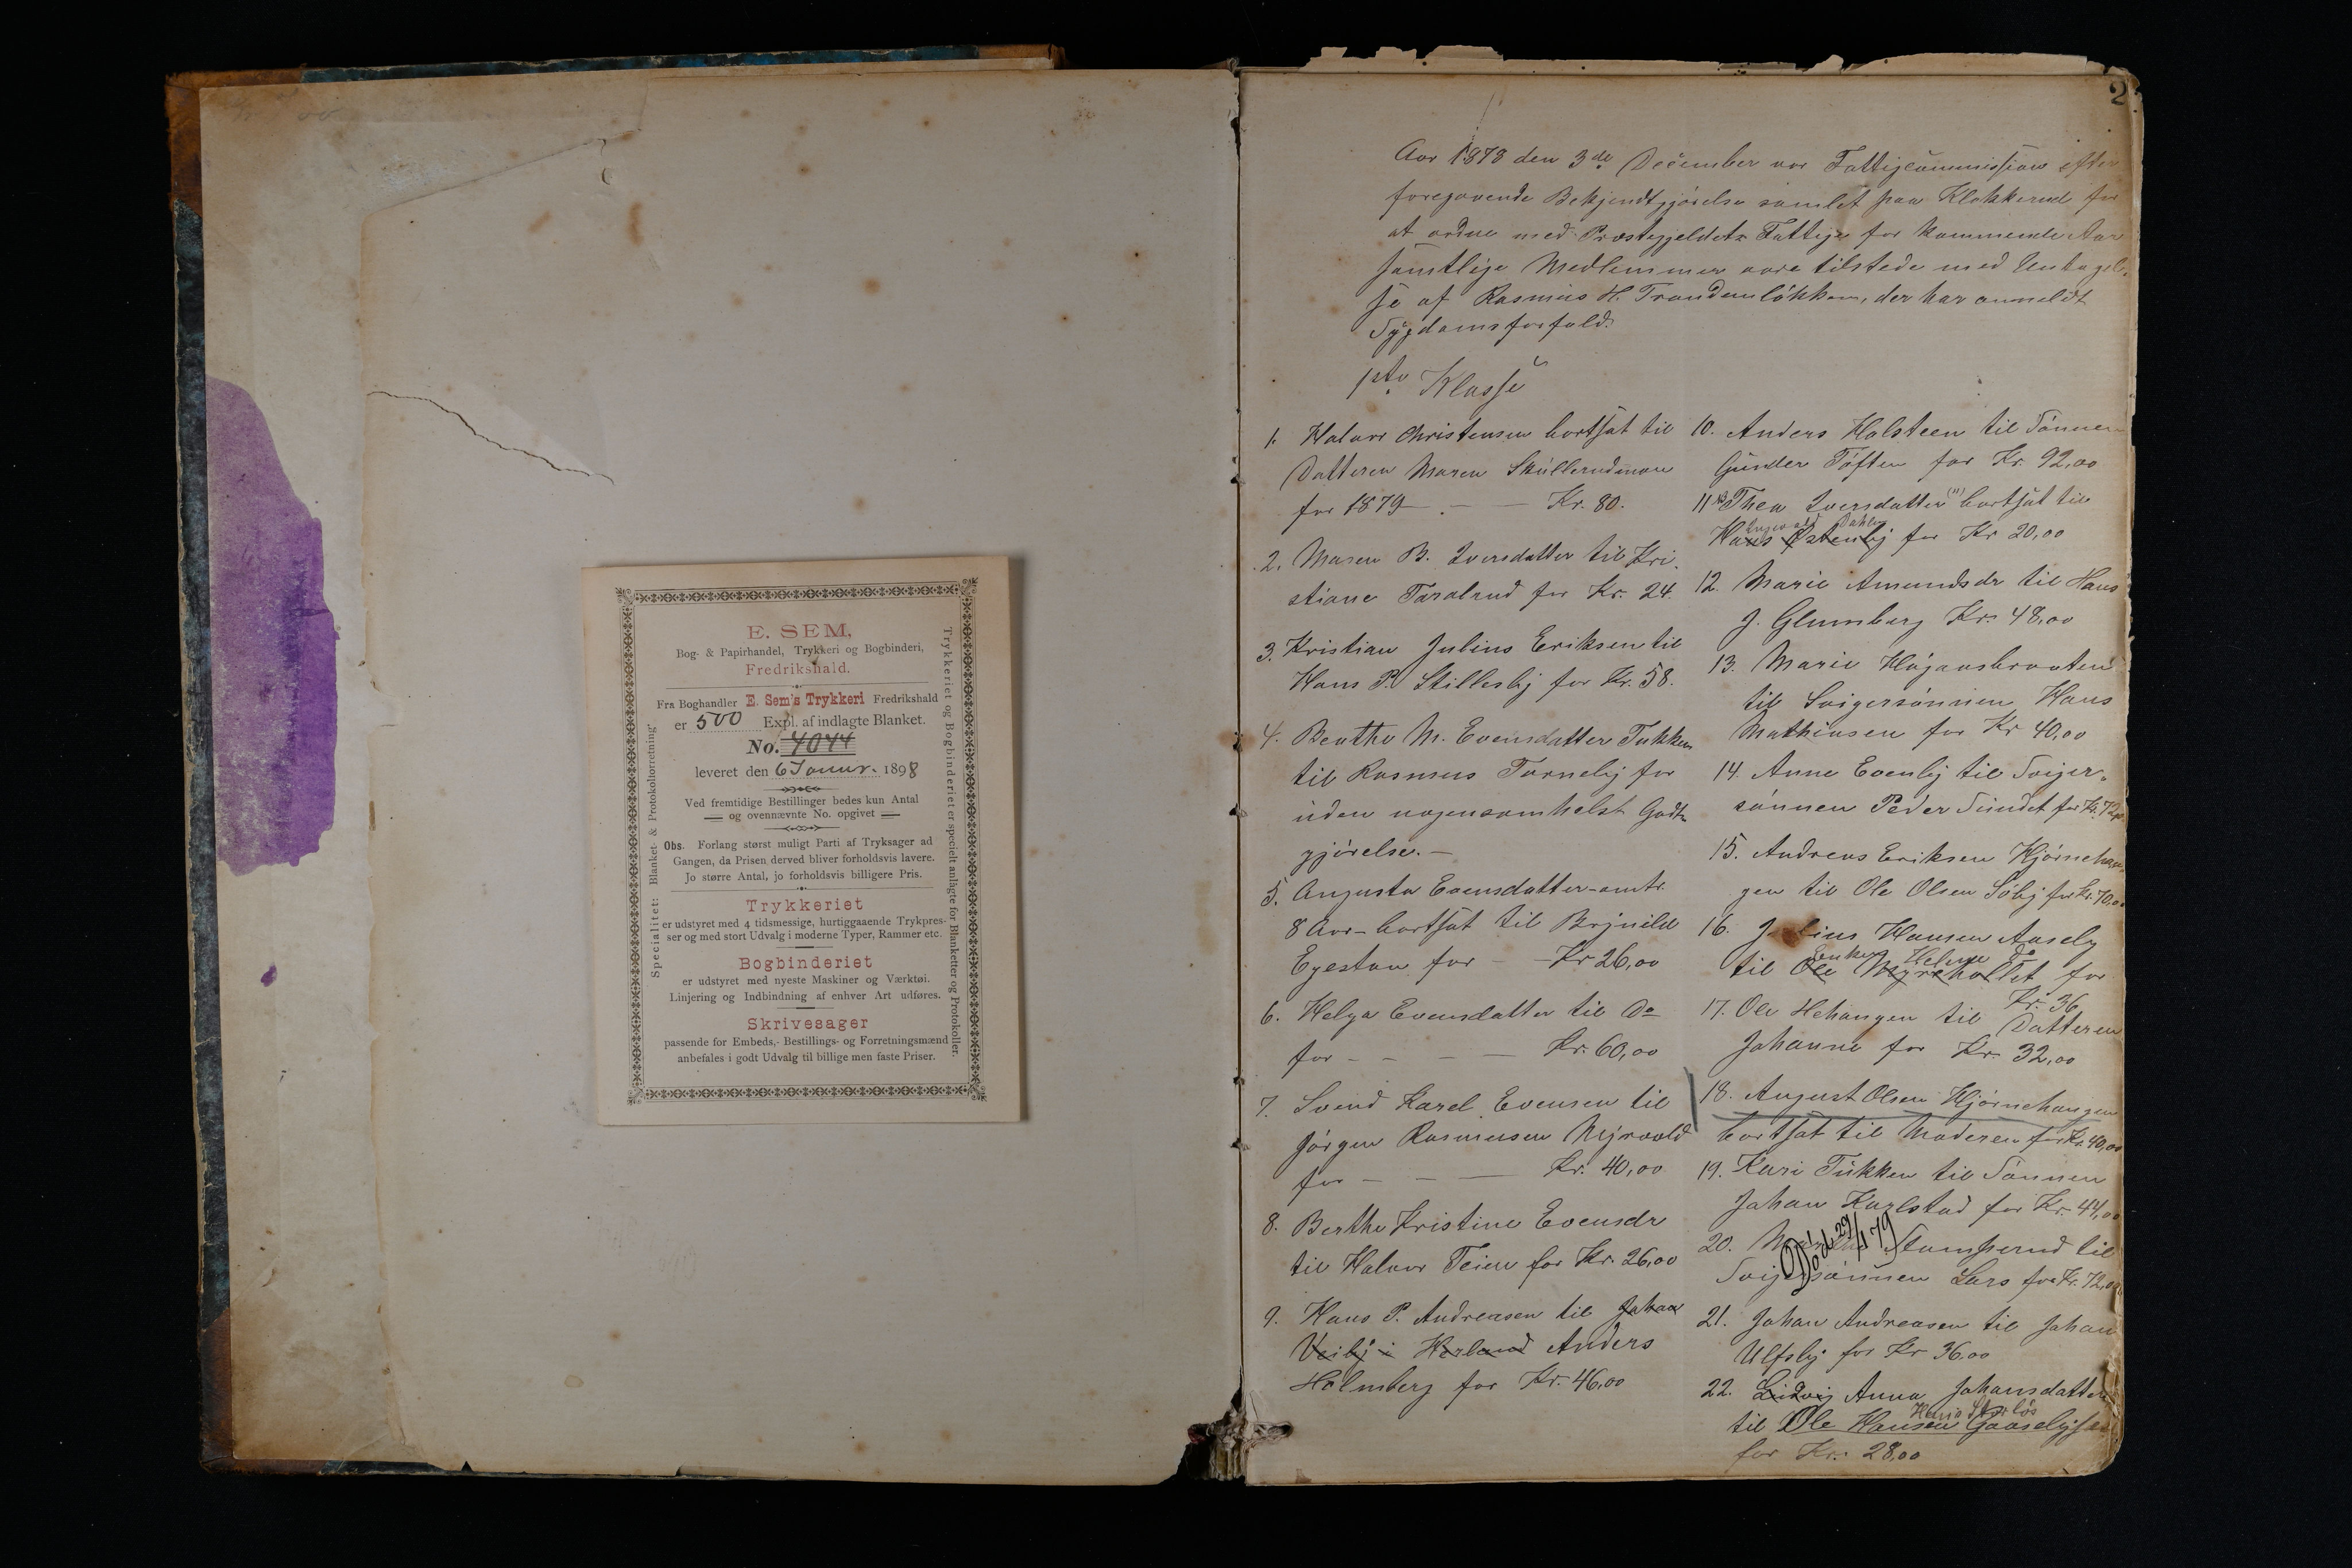 E. SEM,
Bog- & Papirhandel, Trykkeri og Bogbinderi,
Fredrikshald.
Fra Boghandler E. Sem's Trykkeri Fredrikshald
er 500 Expl. af indlagte Blanket.
No. 4044
leveret den 6 Januar. 1898
Ved fremtidige Bestillinger bedes kun Antal
og ovennævnte No. opgivet
Obs. Forlang størst muligt Parti af Tryksager ad
Gangen, da Prisen derved bliver forholdsvis lavere.
Jo større Antal, jo forholdsvis billigere Pris.
Trykkeriet
er udstyret med 4 tidsmessige, hurtiggaaende Trykpres-
ser og med stort Udvalg i moderne Typer, Rammer etc.
Bogbinderiet
er udstyret med nyeste Maskiner og Værktøi.
Linjering og Indbindning af enhver Art udføres.
Skrivesager
passende for Embeds,- Bestillings- og Forretningsmænd
anbefales i godt Udvalg til billige men faste Priser.
Specialitet: Blanket- & Protokolforretning.
Trykkeriet og Bogbinderiet er specielt anlagte for Blanketter og Protokoller.
2
Aar 1878 den 3de December var Fattigcommission efter
foregaaende Bekjendtgjörelse samlet paa Klokkerud for
at ordne med Præstegjeldets Fattige for kommende Aar
samtlige Medlemmer vare tilstede med Undtagel-
se af Rasmus H. Trandemlökken, der har anmeldt
Sygdomsforfald.
1ste Klasse
1. Halvor Christensen bortsat til
Datteren Maren Skullerudmoen
for 1879 - - Kr. 80.
2. Maren B. Iversdatter til Kri-
stiane Taralrud for Kr. 24.
3. Kristian Julius Eriksen til
Hans P. Stillesby for Kr. 58.
4. Benthe M. Evensdatter Tukken
til Rasmus Torneby for
uden nogensomhelst Godt-
gjörelse. -
5. Augusta Evensdatter - omtr.
8 Aar - bortsat til Brynild
Egestan for - - Kr 26,00
6. Helga Evensdatter til Do
for - - - - Kr. 60,00
7. Svend Karel Evensen til
Jörgen Rasmussen Myrvold
for - - - Kr. 40,00
8. Berthe Kristine Evensdr
til Halvor Teien for Kr. 26,00
9. Hans P. Andreasen til Johan
Veiby i Herland Anders
Holmberg for Kr. 46,00
10. Anders Holsteen til Sönnen
Gunder Töften for Kr. 92,00
11 Thea Iversdatter (11) bortsat til
Ingevald Dahlen
Hans Østenby for Kr 20,00
12. Marie Amundsdr til Hans
J. Glumberg Kr. 48,00
13. Marie Högaasbraaten
til Svigersönnen Hans
Mathiesen for Kr 40,00
14. Anne Evenby til Sviger-
sönnen Peder Sundet for Kr. 72,00
15. Andreas Eriksen Hjörnehaugen
gen til Ole Olsen Söby for Kr. 70,00
16. Julius Hansen Aaseby
Enken Helene Do
til Ole Myreholtet for
Kr. 36
17. Ole Hehaugen til Datteren
Johanne for Kr. 32,00
18. August Olsen Hjörnehaugen
bortsat til Moderen for Kr. 40,00
19. Kari Tukken til Sönnen
Johan Karlstad for Kr. 44,00
20. Stamperud til
Død 29/1 79
Svigersönnen Lars for Kr. 72,00
21. Johan Andreasen til Johan
Ulfsby for Kr 36,00
22. Ludvig Anna Johansdatter
Hans
til Ole Hansen Gaaseby
for Kr. 28,00